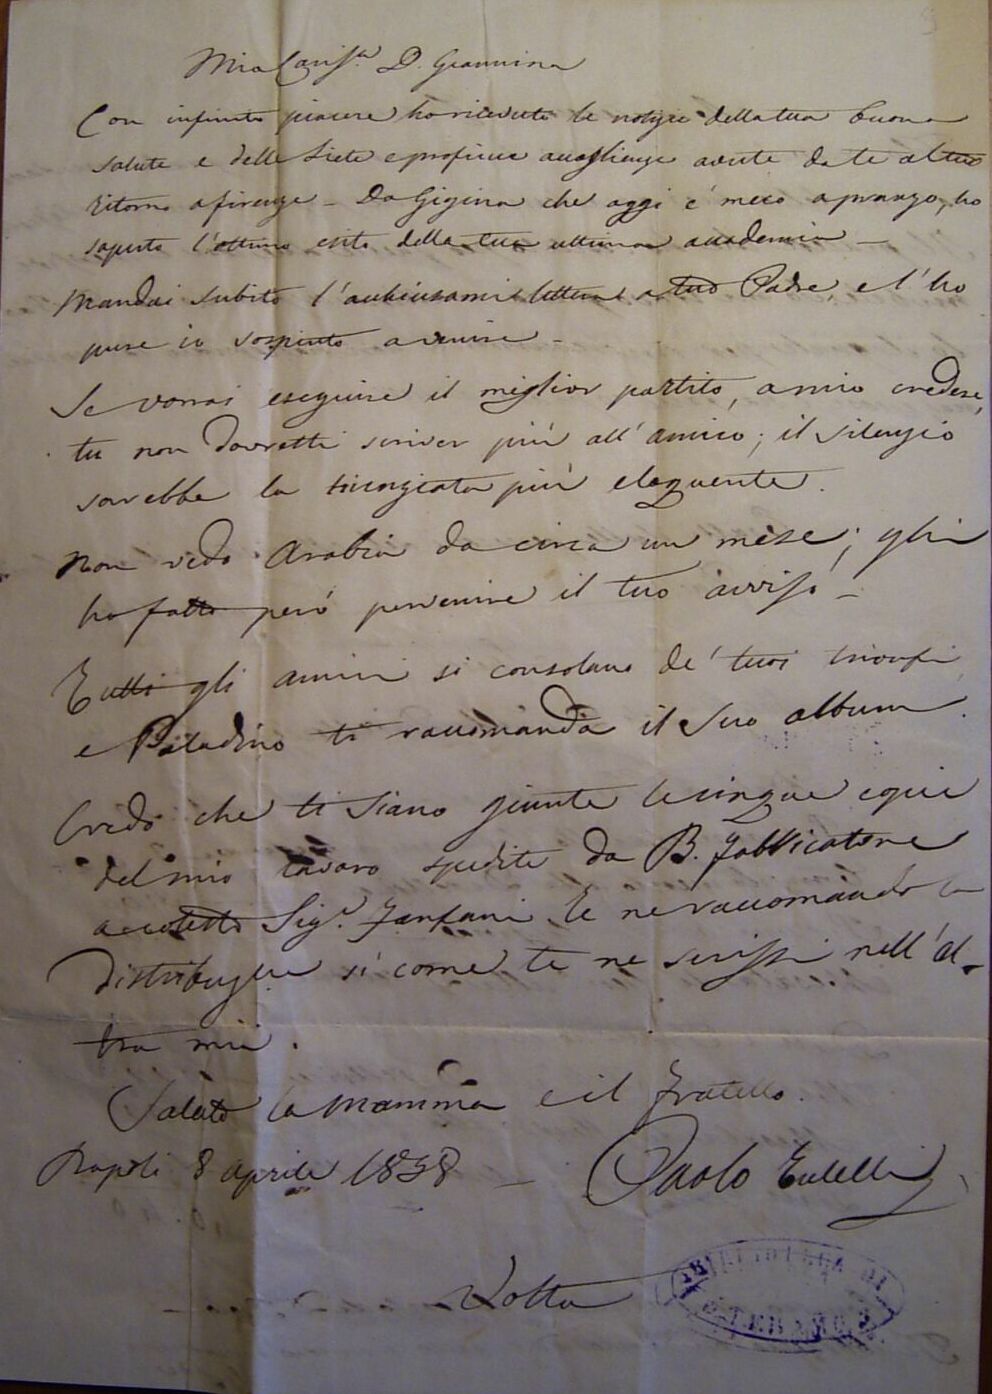 Mia Cariss.a D. Giannina
Con infinito piacere ho ricevuto le notizie della tua buona
salute e delle liete e proficue accoglienze avute da te al tuo
ritorno a firenze – Da Gigina che oggi é meco a pranzo, ho
saputo l'ottimo esito della tua ultima accademia –
Mandai subito l' lettera a tuo Padre, e l'ho
pure io sospinto a venire –
Se vorrai eseguire il miglior partito, a mio credere,
tu non dovretti scriver più all'amico; il silenzio
sarebbe la più eloquente.
Non vedo Arabia da circa un mese; gli
ho fatto peró pervenire il tuo avviso –
Tutti gli amici si consolano de' tuoi trionfi,
e Paladino ti raccomanda il suo album.
Credo che ti siano giunte le cinque copie
del mio lavoro spedite da B. Fabbricatore
a cotesto Sig.r Fanfani. Te ne raccomando la
distribuzione sì come te ne scrissi nell'al-
tra mia.
Saluto la mamma e il fratello.
Napoli 8 aprile 1858 –
Paolo
Volta
BIBLIOTECA DI
TERAMO